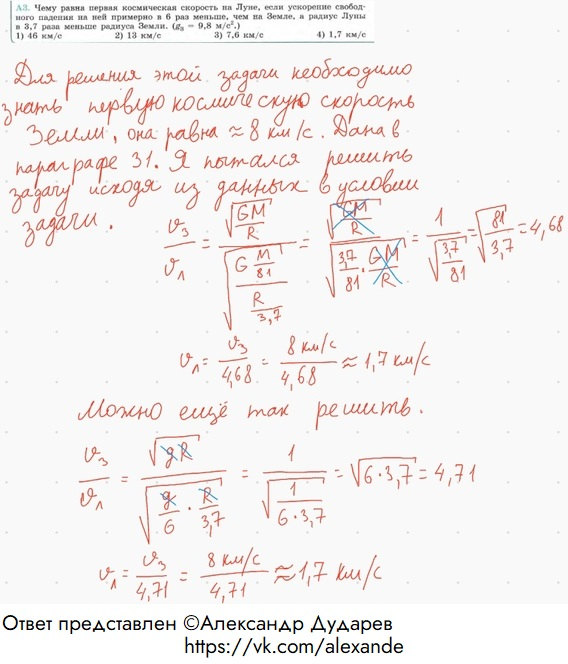 А3. Чему равна первая космическая скорость на Луне, если ускорение свобод-
ного падения на ней примерно в 6 раз меньше, чем на Земле, а радиус Луны
в 3,7 раза меньше радиуса Земли. (gз = 9,8 м/с².)
1) 46 км/с 2) 13 км/с 3) 7,6 км/с 4) 1,7 км/с
Для решения этой задачи необходимо
знать первую космическую скорость
Земли, она равна ≈ 8 км/с. Дана в
параграфе 31. Я пытался решить
задачу исходя из данных в условии
задачи.
vз/vл = √(GM/R) / √(G (M/81) / (R/3,7)) = √(GM/R) / √(3,7/81 · GM/R) = 1/√(3,7/81) = √(81/3,7) = 4,68
vл = vз/4,68 = 8 км/с / 4,68 ≈ 1,7 км/с
Можно ещё так решить.
vз/vл = √(gR) / √(g/6 · R/3,7) = 1/√(1/(6·3,7)) = √(6·3,7) = 4,71
vл = vз/4,71 = 8 км/с / 4,71 ≈ 1,7 км/с
Ответ представлен ©Александр Дударев
https://vk.com/alexande